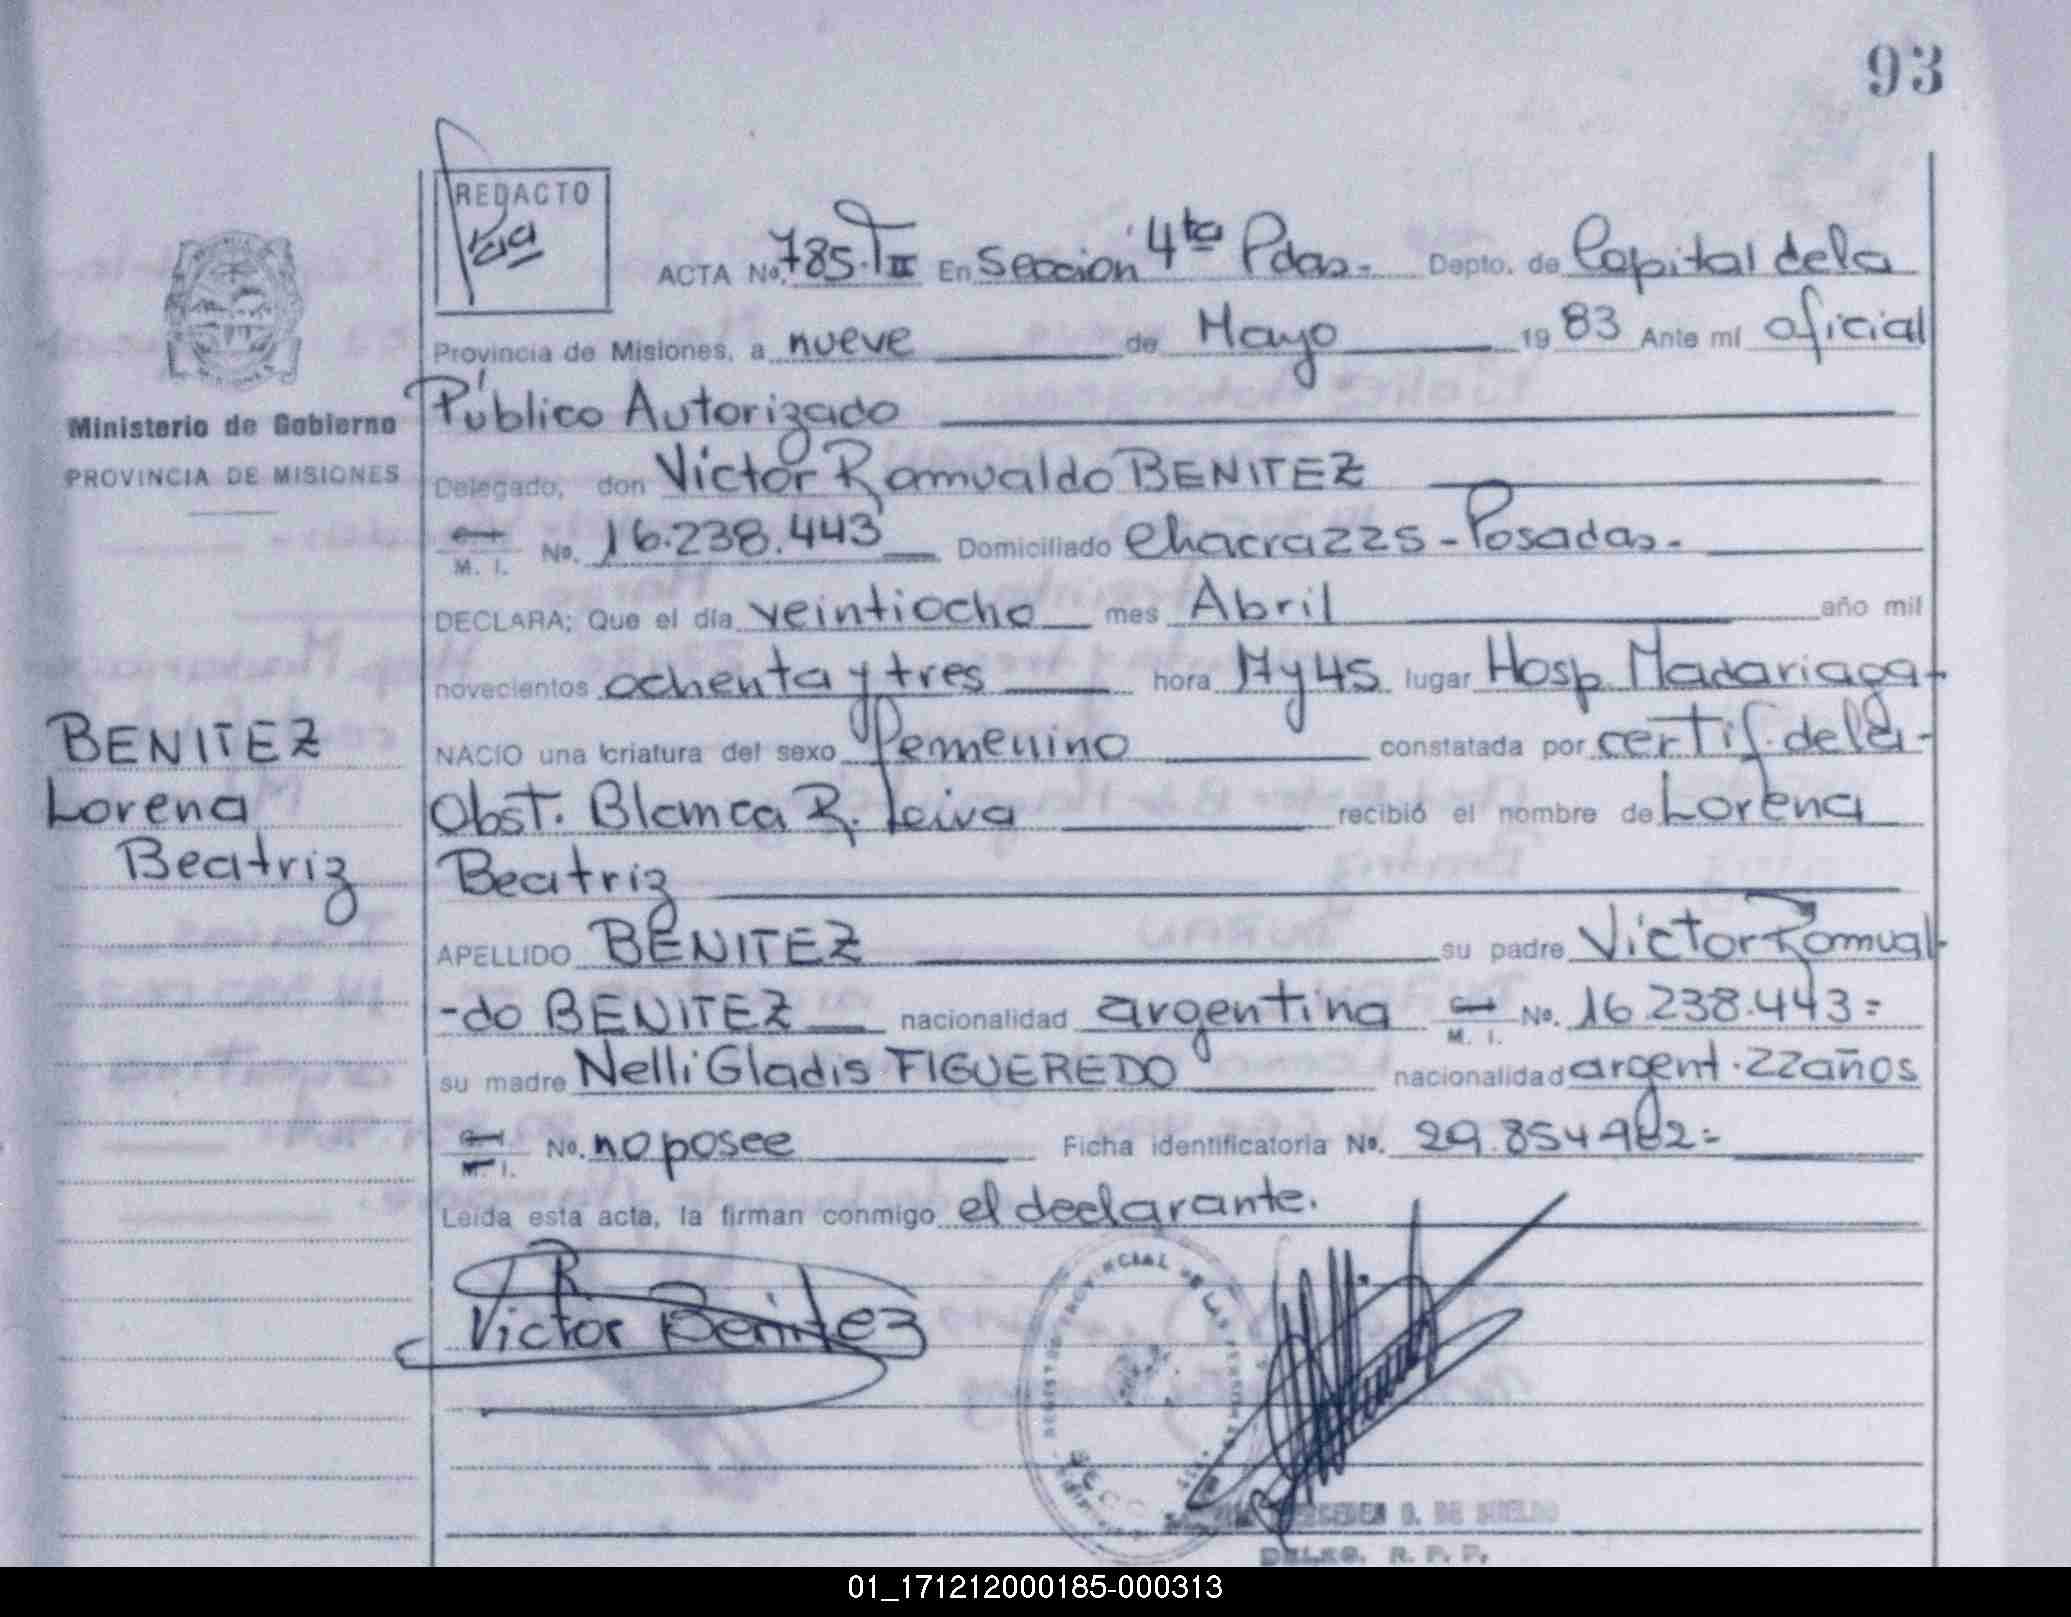 93
REDACTO
ACTA No. 785.TII En Sección 4ta Pdas. Depto. de Capital de la
Provincia de Misiones, a nueve de Mayo 1983 Ante mí oficial
Público Autorizado
Delegado, don Víctor Romualdo BENITEZ
M. I. No. 16.238.443 Domiciliado Chacra 225 - Posadas.
DECLARA: Que el día veintiocho mes Abril año mil
novecientos ochenta y tres hora 17 y 45 lugar Hosp. Madariaga-
NACIO una criatura del sexo femenino constatada por certif. de la-
Obst. Blanca R. Leiva recibió el nombre de Lorena
Beatriz
APELLIDO BENITEZ su padre Víctor Romual-
-do BENITEZ nacionalidad argentina M. I. No. 16.238.443=
su madre Nelli Gladis FIGUEREDO nacionalidad argent. 22 años
M. I. No. no posee Ficha identificatoria No. 29.854.982=
Leída esta acta, la firman conmigo el declarante.
Victor Benitez
DELEG. R. P. P.
Ministerio de Gobierno
PROVINCIA DE MISIONES
BENITEZ
Lorena
Beatriz
01_171212000185-000313